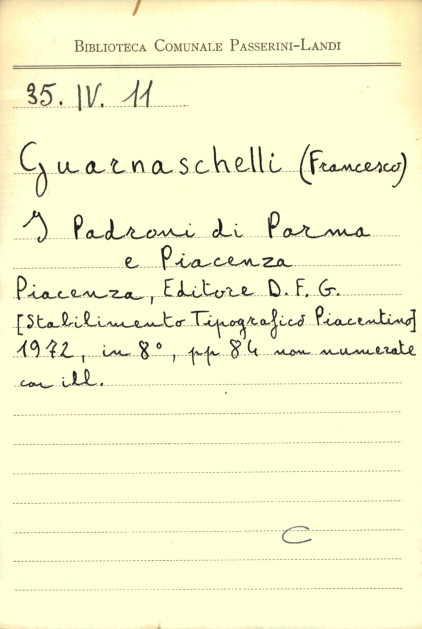 BIBLIOTECA COMUNALE PASSERINI-LANDI
35. IV. 11
Guarnaschelli (Francesco)
I Padroni di Parma
e Piacenza
Piacenza, Editore D. F. G.
[Stabilimento Tipografico Piacentino]
1972, in 8°, pp 84 non numerate
con ill.
C